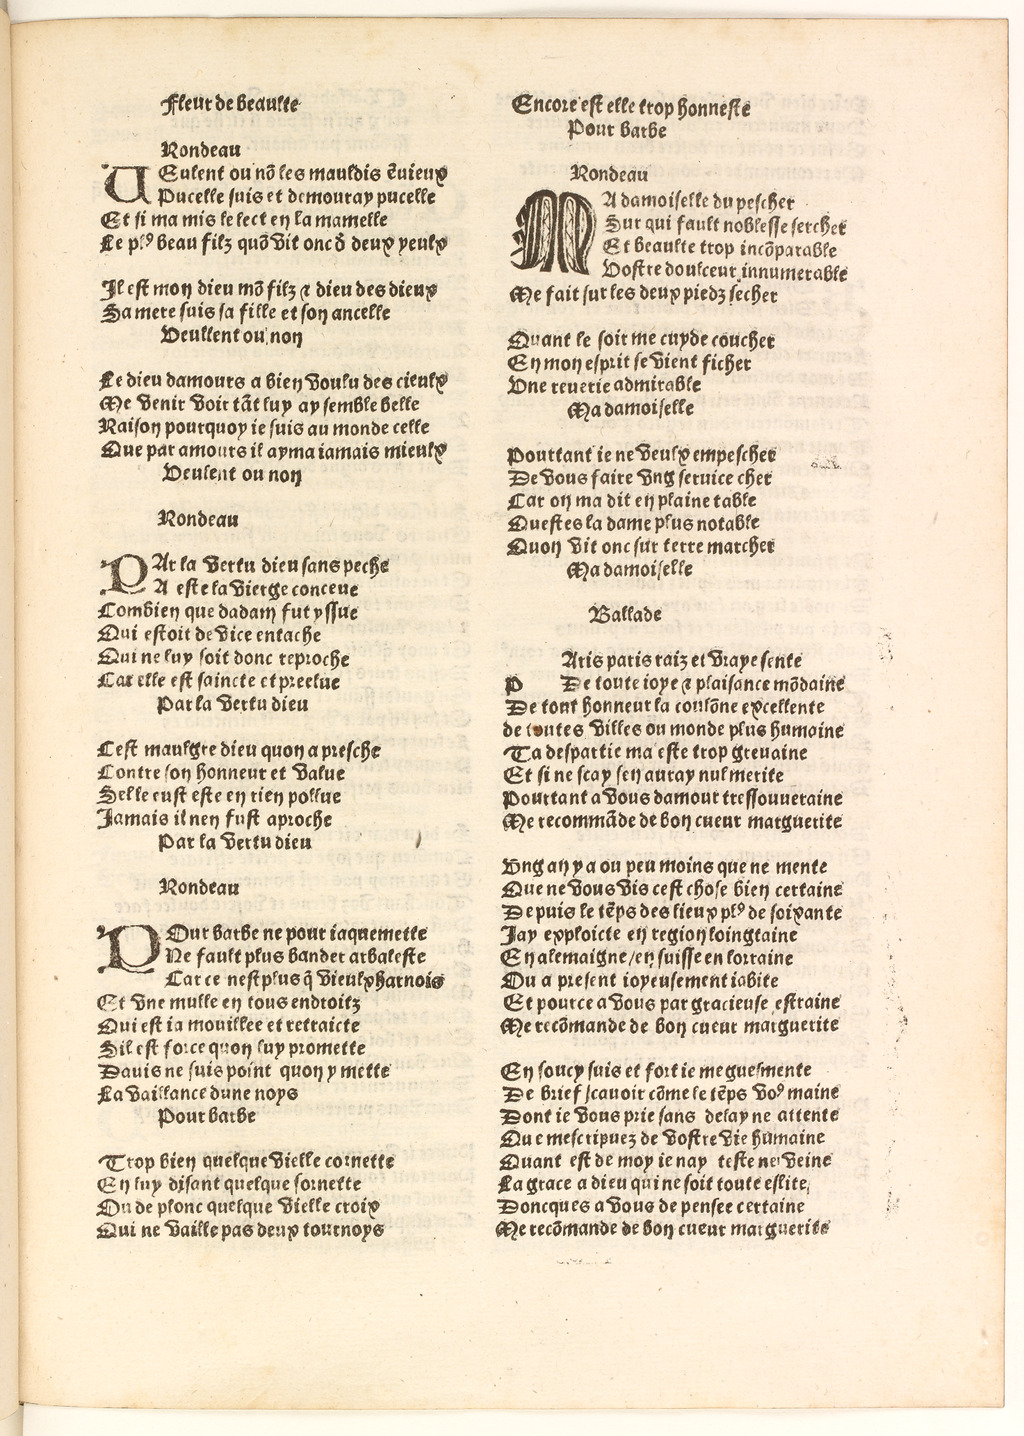 Fleur de beaulte
Rondeau
VEulent ou nõ les mauldis ẽuieux
Pucelle suis et demouray pucelle
Et si ma mis le lect en la mamelle
Le plꝰ beau filz quõ vit onc d̃ deux yeulx
Il est mon dieu mõ filz ⁊ dieu des dieux
Sa mere suis sa fille et son ancelle
Veullent ou non
Le dieu damours a bien voulu des cieulx
Me venir voir tãt luy ay semble belle
Raison pourquoy ie suis au monde celle
Que par amours il ayma iamais mieulx
Veulent ou non
Rondeau
PAr la vertu dieu sans peche
A este la vierge conceue
Combien que dadam fut yssue
Qui estoit de vice entache
Qui ne luy soit donc reproche
Car elle est saincte et preelue
Par la vertu dieu
Cest maulgre dieu quon a presche
Contre son honneur et value
Selle eust este en rien pollue
Iamais il nen fust aproche
Par la vertu dieu
Rondeau
POur barbe ne pour iaquemette
Ne fault plus bander arbaleste
Car ce nest plus q̃ vieulx harnois
Et vne mulle en tous endroitz
Qui est ia mouillee et retraicte
Sil est force quon luy promette
Dauis ne suis point quon y mette
La vaillance dune noys
Pour barbe
Trop bien quelque vielle cornette
En luy disant quelque sornette
Ou de plonc quelque vielle croix
Qui ne vaille pas deux tournoys
Encore est elle trop honneste
Pour barbe
Rondeau
MA damoiselle du pescher
Sur qui fault noblesse sercher
Et beaulte trop incõparable
Vostre doulceur innumerable
Me fait sur les deux piedz secher
Quant le soir me cuyde coucher
En mon esprit se vient ficher
Vne reuerie admirable
Ma damoiselle
Pourtant ie ne veulx empescher
De vous faire vng seruice cher
Car on ma dit en plaine table
Questes la dame plus notable
Quon vit onc sur terre marcher
Ma damoiselle
Ballade
Aris paris raiz et vraye sente
p De toute ioye ⁊ plaisance mõdaine
De tout honneur la coulõne excellente
de toutes villes ou monde plus humaine
Ta despartie ma este trop greuaine
Et si ne scay sen auray nul merite
Pourtant a vous damour tressouueraine
Me recommãde de bon cueur marguerite
Vng an y a ou peu moins que ne mente
Que ne vous vis cest chose bien certaine
Depuis le tẽps des lieux plꝰ de soixante
Iay exploicte en region loingtaine
En alemaigne/en suisse en lorraine
Ou a present ioyeusement iabite
Et pource a vous par gracieuse estraine
Me recõmande de bon cueur marguerite
En soucy suis et fort ie me guesmente
De brief scauoir cõme le tẽps voꝰ maine
Dont ie vous prie sans delay ne attente
Que mescripuez de vostre vie humaine
Quant est de moy ie nay teste ne veine
La grace a dieu qui ne soit toute eslite
Doncques a vous de pensee certaine
Me recõmande de bon cueur marguerite